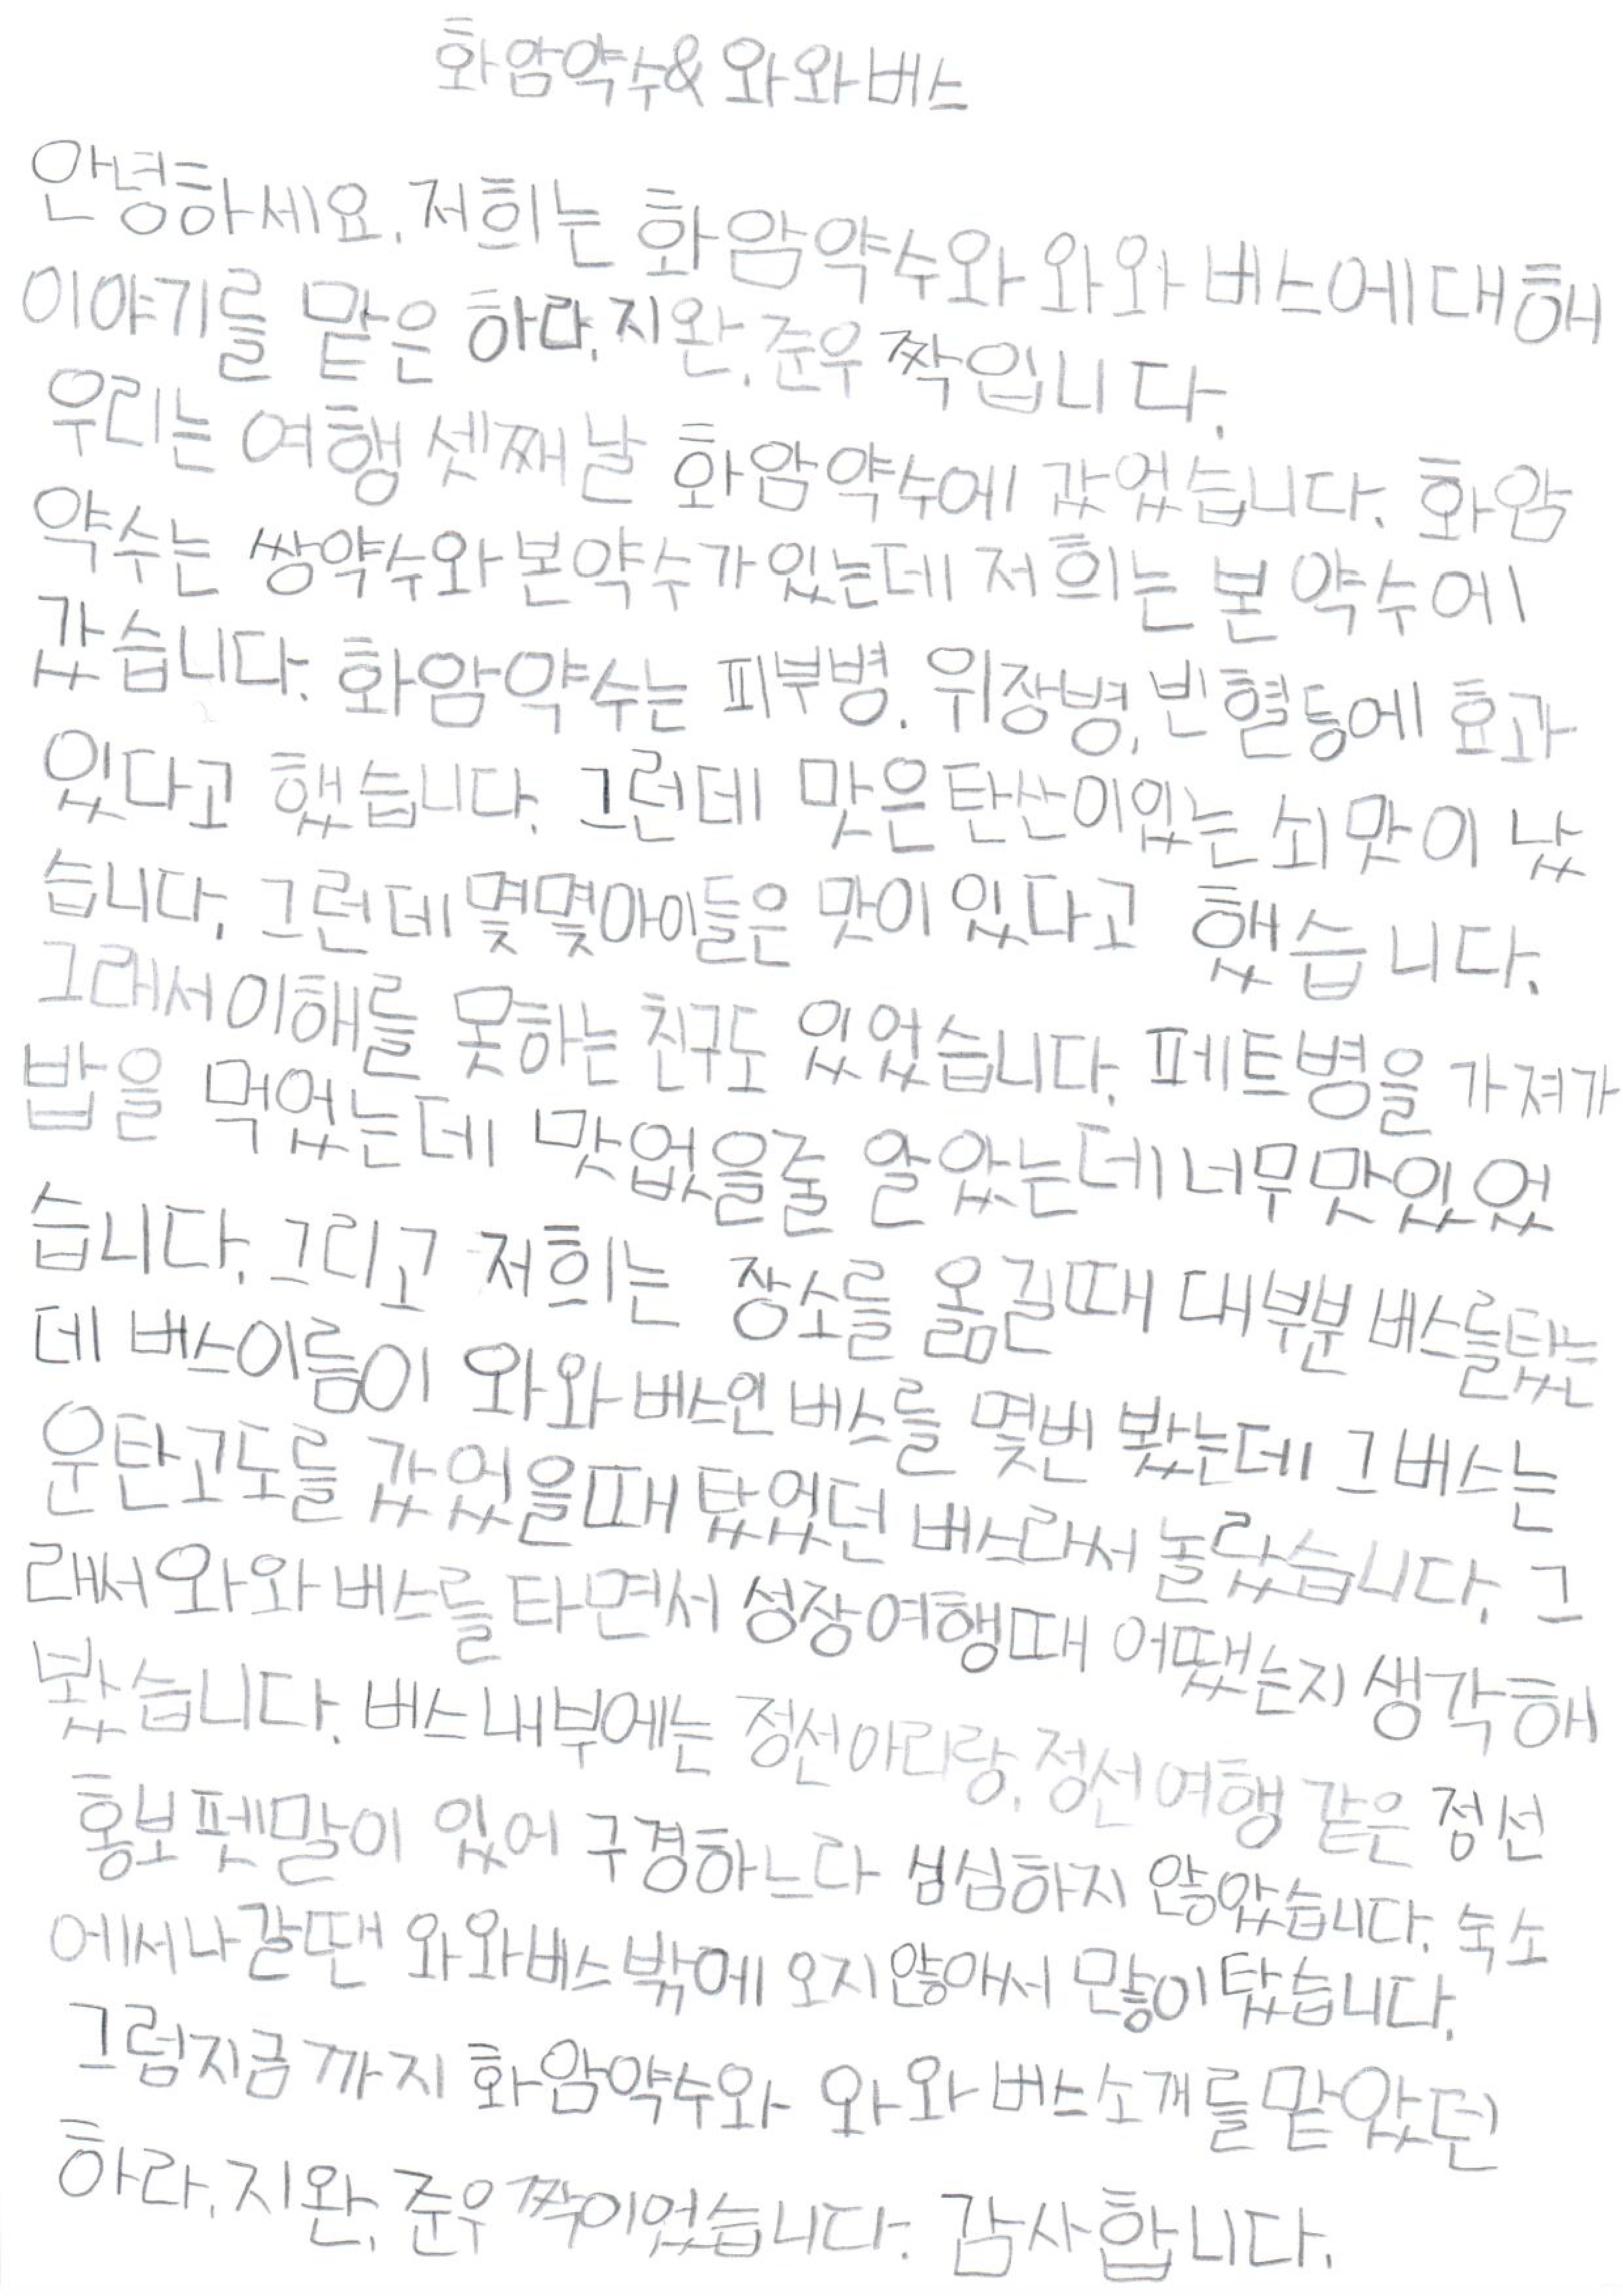 화암약수& 와와버스
안녕하세요. 저희는 화암약수와 와와 버스에대해
이야기를 맡은 하라.지완.준우 짝입니다.
우리는 여행 셋째날 화암약수에 갔었습니다. 화암
약수는 쌍약수와 본약수가 있는데 저희는 본 약수에
갔습니다. 화암약수는 피부병. 위장병, 빈혈등에 효과
있다고 했습니다. 그런데 맛은 탄산이있는 쇠맛이 났
습니다. 그런데 몇몇아이들은 맛이 있다고 했습니다.
그래서 이해를 못하는 친구도 있었습니다. 페트병을 가져가
밥을 먹었는데 맛없을줄 알았는데 너무맛있었
습니다. 그리고 저희는 장소를 옮길때 대부분 버스를탔는
데 버스이름이 와와 버스인 버스를 몇번 봤는데 그버스는
운탄고도를 갔었을때 탔었던 버스라서 놀랐습니다. 그
래서 와와 버스를 타면서 성장여행때 어땠는지 생각해
봤습니다. 버스내부에는 정선아리랑, 정선여행 같은 정선
홍보팻말이 있어 구경하느라 심심하지 않았습니다. 숙소
에서나갈땐 와와버스밖에 오지않아서 많이탔습니다.
그럼지금까지 화암약수와 와와 버스소개를맡았던
하라.지완.준우짝이었습니다. 감사합니다.